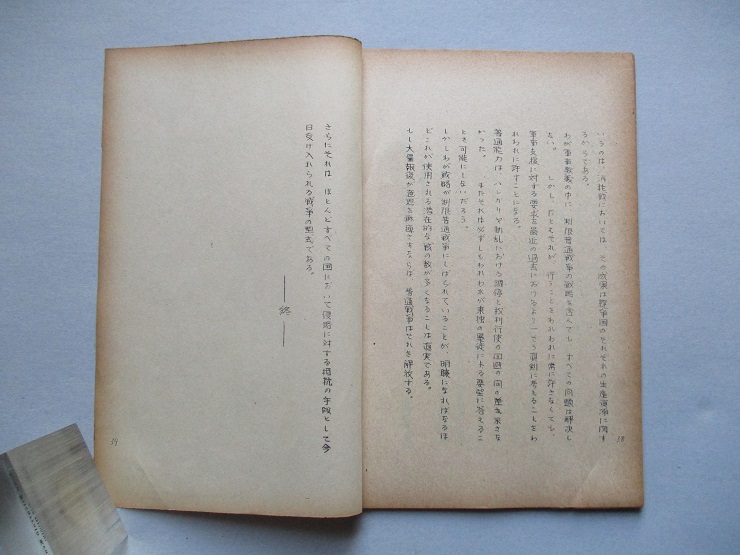 いうのは、消耗戦においては、その成果は競争国のそれぞれの生産資源に関す
るからである。
わが軍事教義の中に、制限普通戦争の戦略を含んでも、すべての問題は解決し
ない。 しかし、たとえそれが、行うことをわれわれに常に許さなくても、
軍事支援に対する要求を最近の過去におけるよりいっそう選別に考えることをわ
れわれに許すことになる。
普通能力は、ハンガリア動乱における調停と権利行使の回避の間の差を
かった。 またそれは必ずしもわれわれが東独の暴徒による要望に答えるこ
とを可能にしないだろう。
しかしわが戦略が制限普通戦争にしばられていることが、明瞭になればなるほ
どこれが使用される潜在的な数の数が多くなることは確実である。
もし大量報復が意志を麻痺させるならば、普通戦争はそれを解放する。
38
さらにそれは、ほとんどすべての国において侵略に対する抵抗の手段として今
日受け入れられる戦争の型式である。
終
39